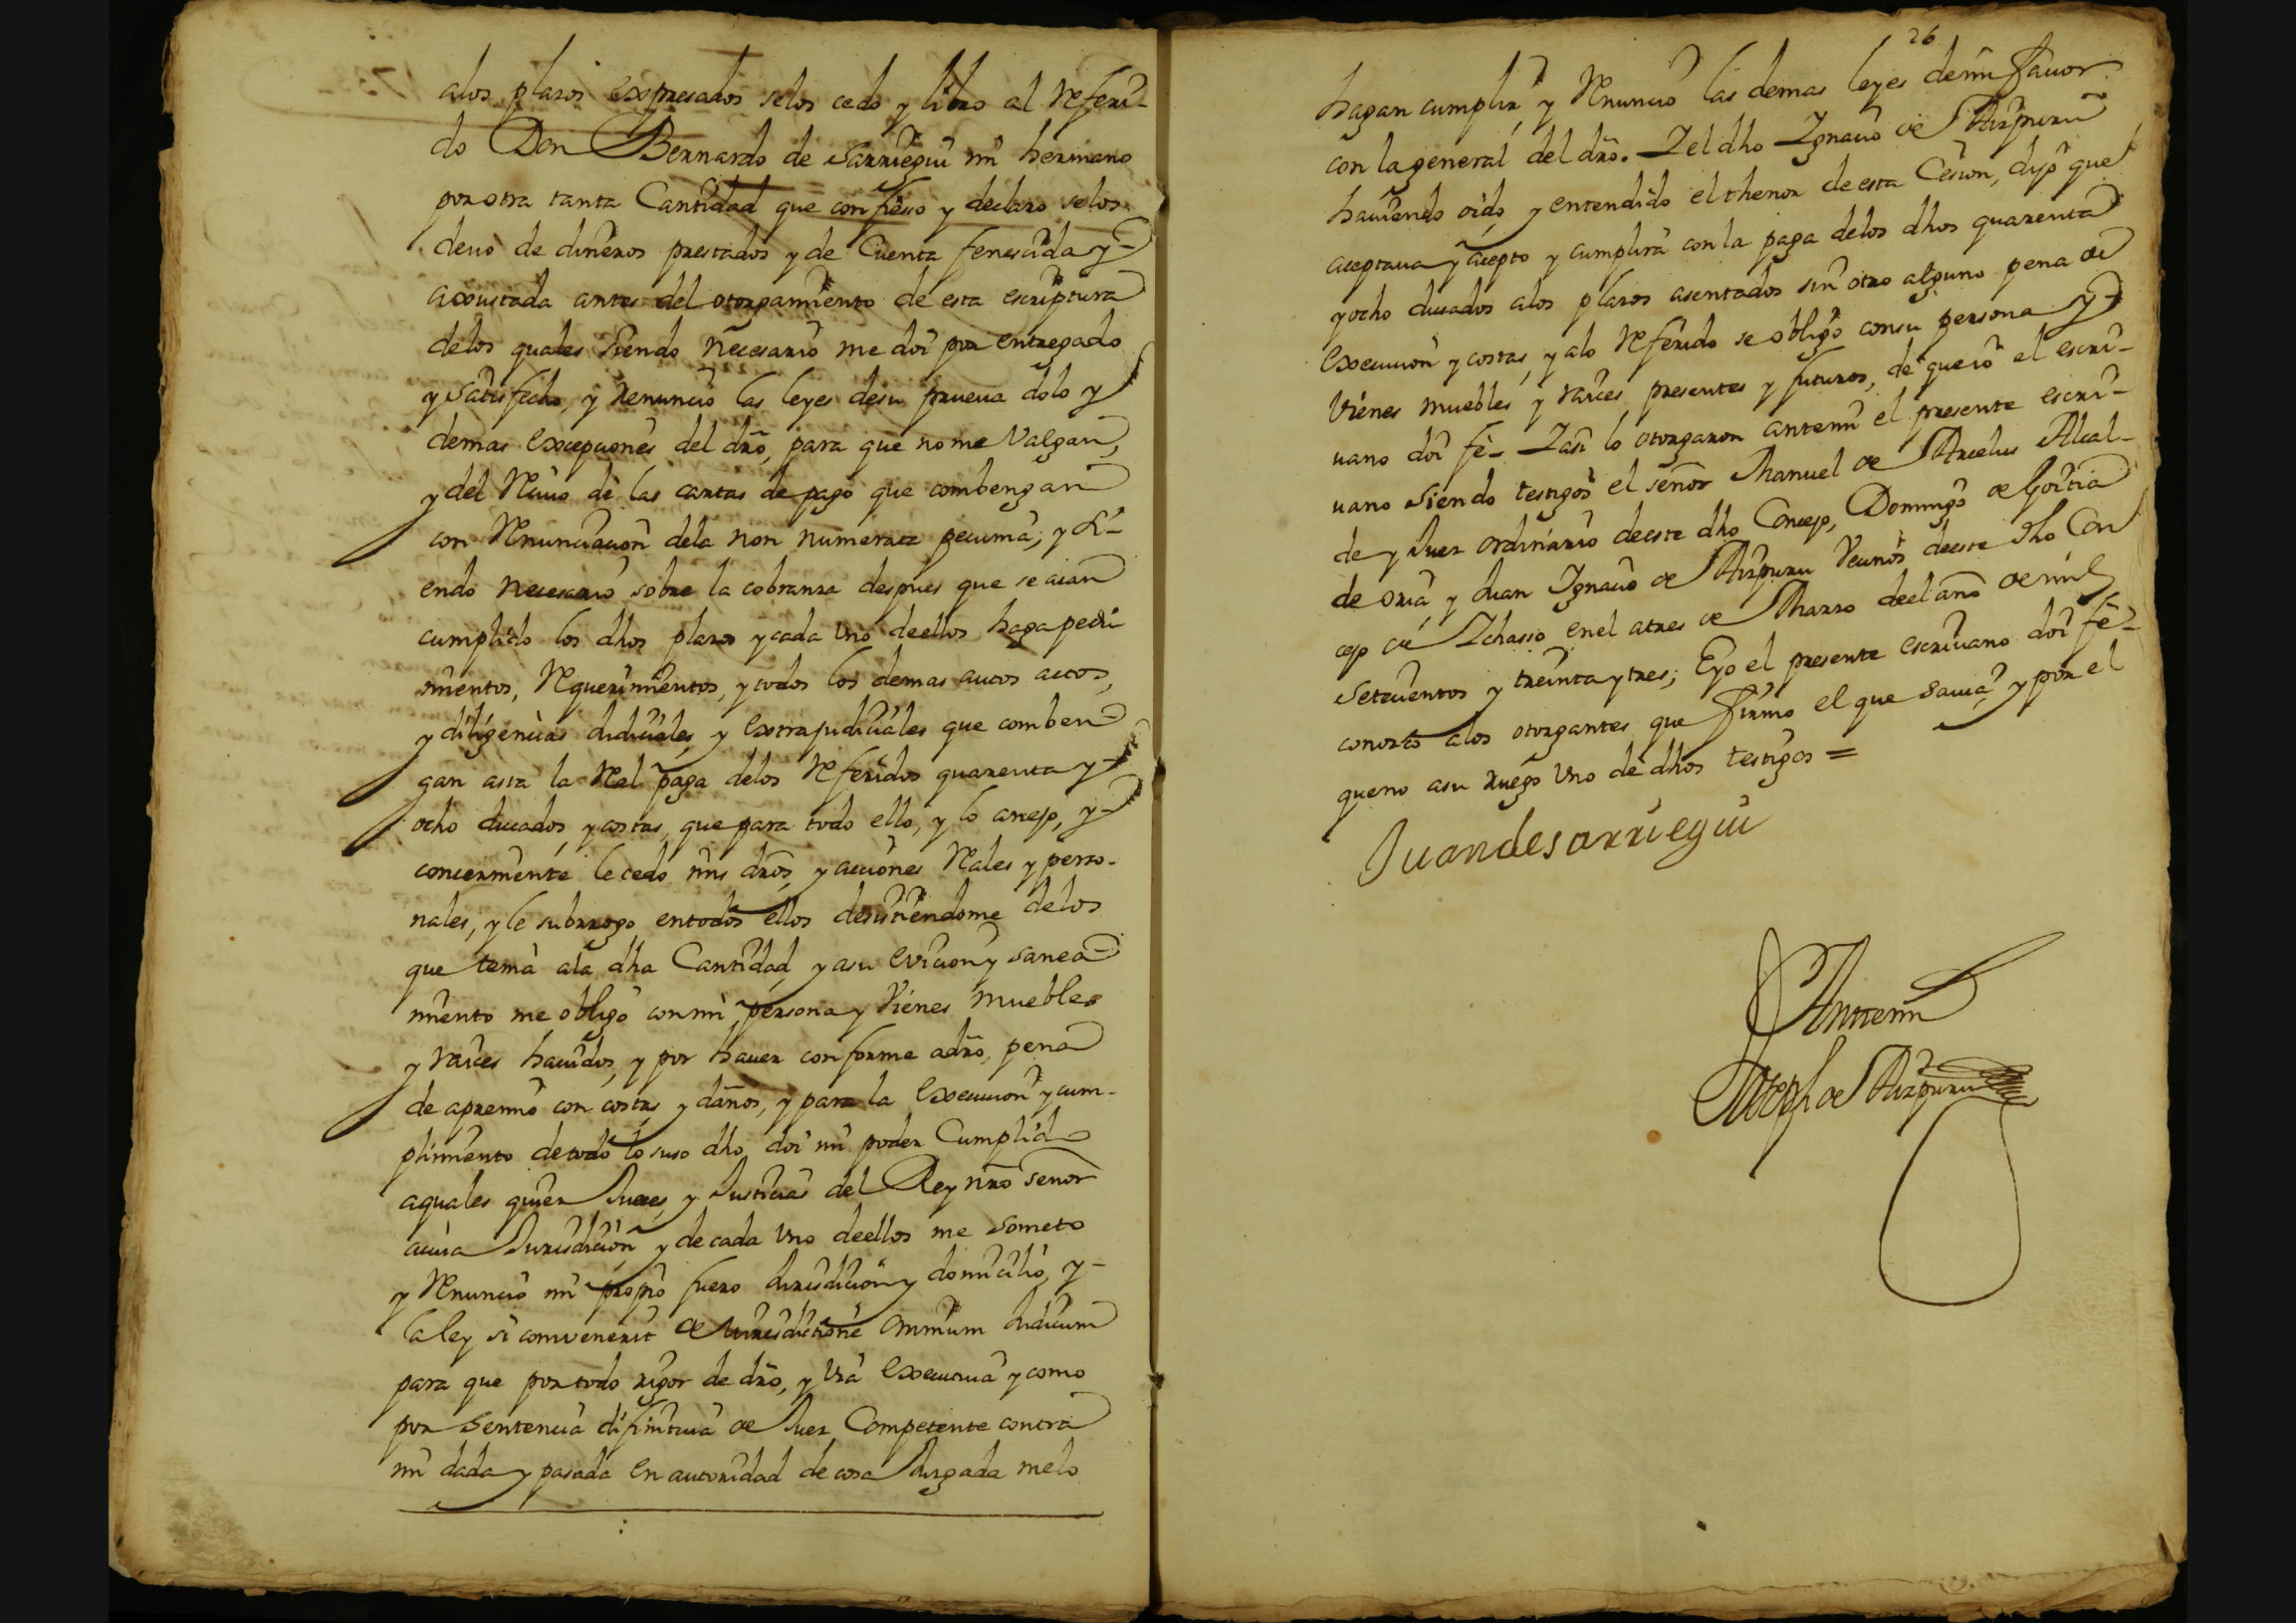 alos plasos expresados selos cedo y libro al referi-
do Don Bernardo de Sarriegui mi hermano
por otra tanta Cantidad que confiesso y declaro selos
deuo de dineros prestados y de Cuenta fenescida y-
axoustada antes del otorgamiento de esta escriptura
delos quales siendo necesario me doi por entregado
y satisfecho, y renuncio las leyes desu prueua dolo y
demas excepciones del dro, para que no me Valgan,
y del reciuo de las cartas de pago que combengan
con renunciacion dela non numerata pecunia; y si-
endo necesario sobre la cobranza despues que se aian
cumplido los dhos plasos y cada Uno deellos haga pedi
mientos, requerimientos, y todos los demas autos actos,
y diligencias Judiciales, y extrajudiciales que comben-
gan asta la real paga delos referidos quarenta y-
ocho ducados, y costas, que para todo ello, y lo anejo, y-
concerniente le cedo mis dros, y acciones reales y perso-
nales, y le subrrogo entodos ellos desistiendome delos
que tenia ala dha Cantidad, y asu eviccion y sanea-
miento me obligo con mi persona y Vienes muebles
y raices hauidos, y por hauer conforme adro, pena
de apremio con costas y daños, y para la execucion y cum-
plimiento detodo lo suso dho doi mi poder Cumplido
aquales quier Jueces, y Justicias del Rey nro señor
acuia Jurisdicion y de cada Uno deellos me someto
y renuncio mi propio fuero Jurisdicion y domicilio, y-
la ley si convenerit de Jurisdictione omnium Judicum
para que por todo rigor de dro, y Via executiua y como
por sentencia difinitiua de Juez Competente contra
mi dada y pasada en autoridad de cosa Jusgada melo
26
hagan cumplir, y renuncio las demas leyes demi fauor
con la general del dro. I el dho Ignacio de Aizpuru
hauiendo oido, y entendido el thenor de esta Cesion, dijo que
aceptaua y acepto y cumplira con la paga delos dhos quarenta
y ocho ducados alos plasos asentados sin otro alguno pena de
execucion y costas, y alo referido se obligo consu persona y-
Vienes muebles y raices presentes y futuros, de que io el escri-
uano doi fe- I asi lo otorgaron antemi el presente escri-
uano siendo testigos el señor Manuel de Arcelus Alcal-
de y Juez ordinario deeste dho Concejo, Domingo de Goitia
de oria, y Juan Ignacio de Aizpuru Vecinos deeste dho Con
cejo de Ichasso enel a tres de Marzo deel año de mil
setecientos y treinta y tres; E yo el presente escriuano doi fe
conozco alos otorgantes que firmo el que sauia, y por el
que no asu ruego Uno de dhos testigos =
Juan de Sarriegui
Antemi
Joseph de Aizpuru